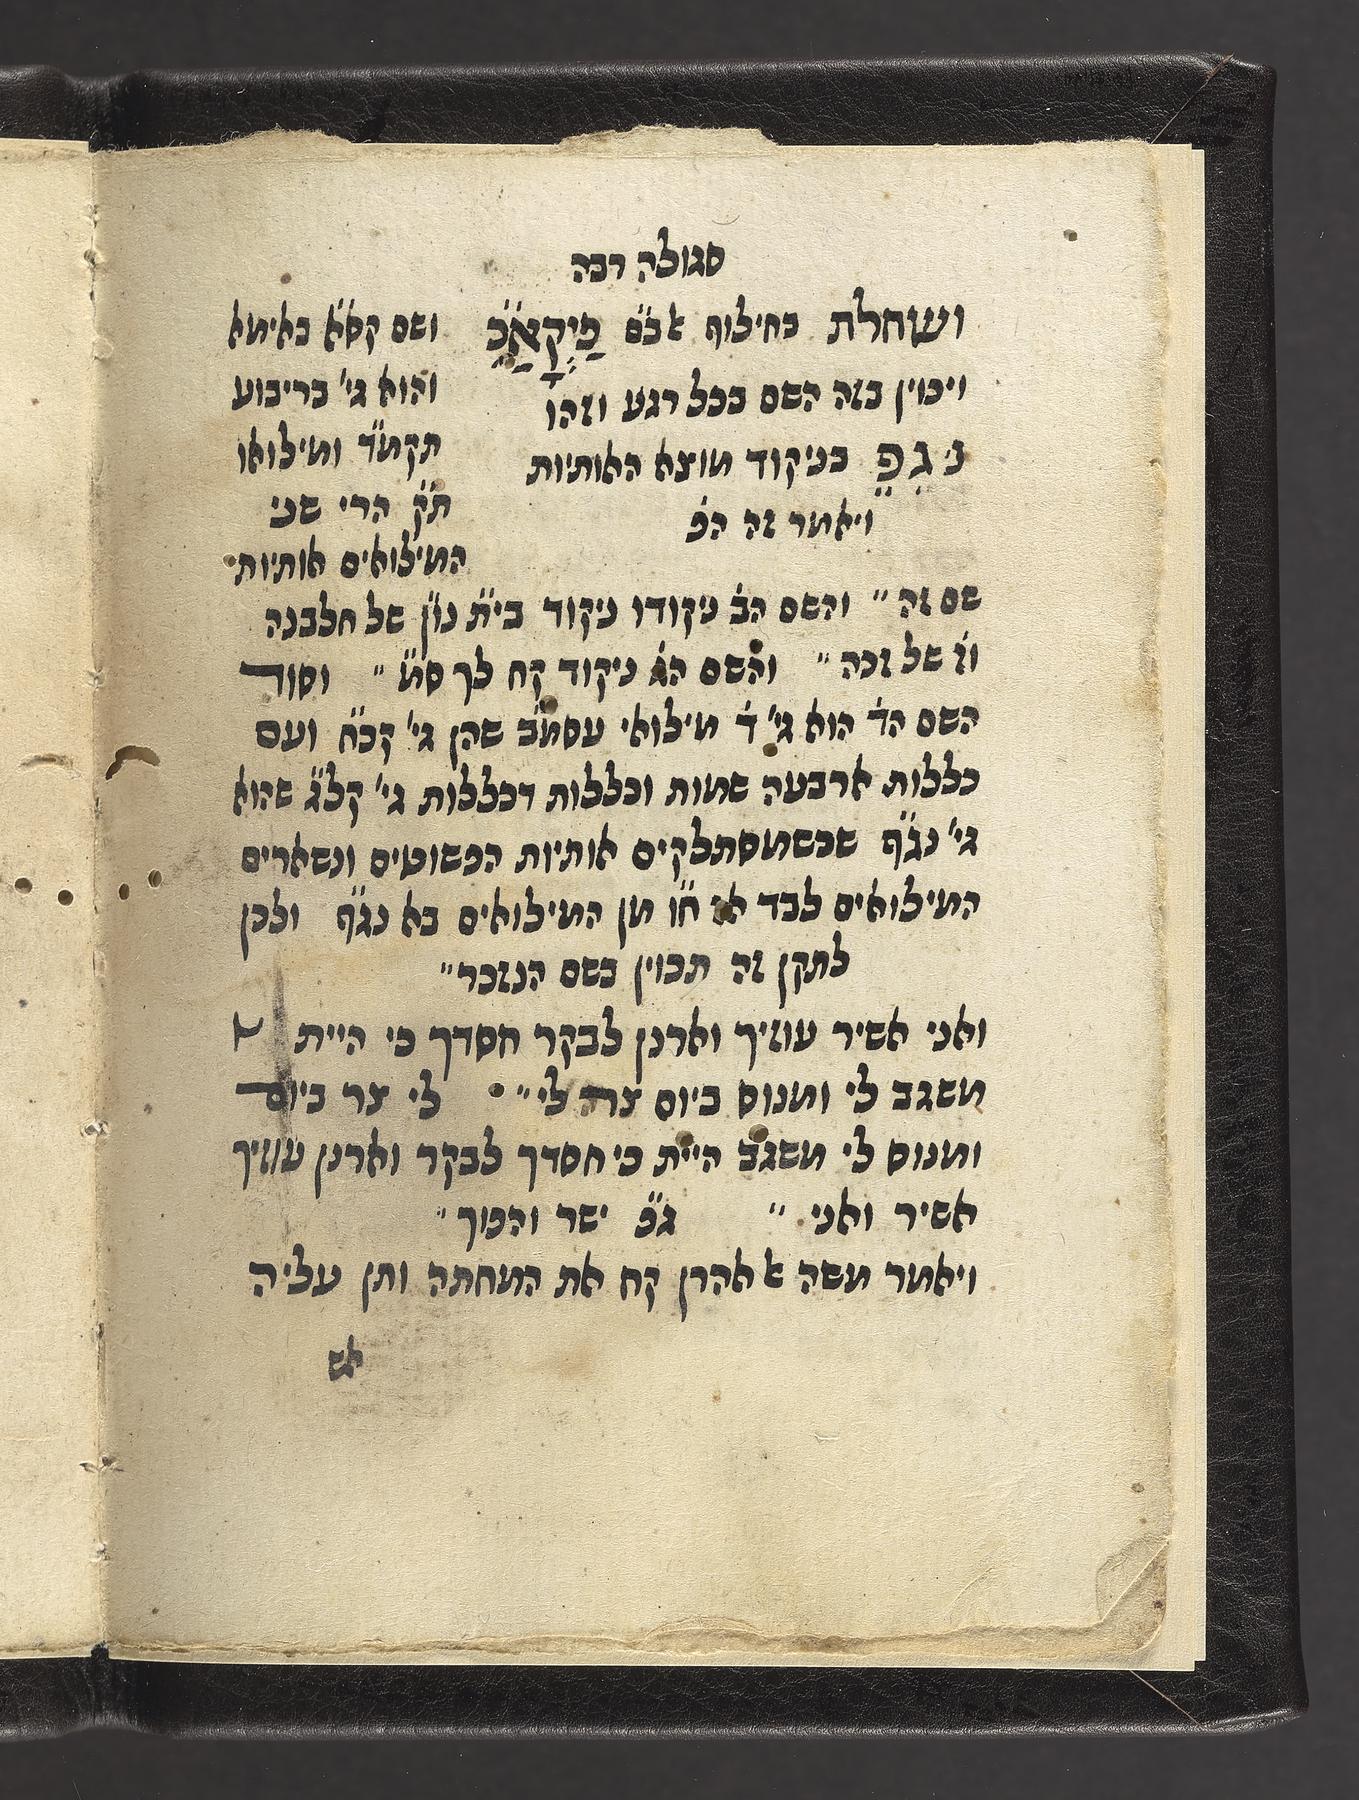 סגולה רבה
ושחלת בחילוף אכ״ם פיקאכ ושם קס״א באימא
ויכוין בזה השם בכל רגע וזהו והוא גי' בריבוע
נ ג פ בניקוד מוצא האותיות תקמ״ד ומילואו
ויאמר זה הפ׳ ת״ק הרי שני
המילואים אותיות
שם זה ״ והשם הב׳ ניקודו ניקוד בי״ת נו״ן של חלבנה
וז׳ של זכה ״ והשם הג׳ ניקוד קח לך סמ״ ״ וסוד
השם הד׳ הוא גי' ד׳ מילואי עסמ״ב שהן גי' קכ״ח ועם
כללות ארבעה שמות וכללות דכללות גי' קל״ג שהוא
גי' נג״ף שכשמסתלקים אותיות הפשוטים ונשארים
המילואים לבד אז ח״ו מן המילואים בא נג״ף ולכן
לתקן זה תכוין בשם הנזכר ״
ואני אשיר עוזיך וארנן לבקר חסדך כי היית
משגב לי ומנוס ביום צרה לי ״ לי צר ביום
ומנוס לי משגב היית כי חסדך לבקר וארנן עוזיך
אשיר ואני ״ ג״פ ישר והפוך ״
ויאמר משה אל אהרן קח את המחתה ותן עליה
אש